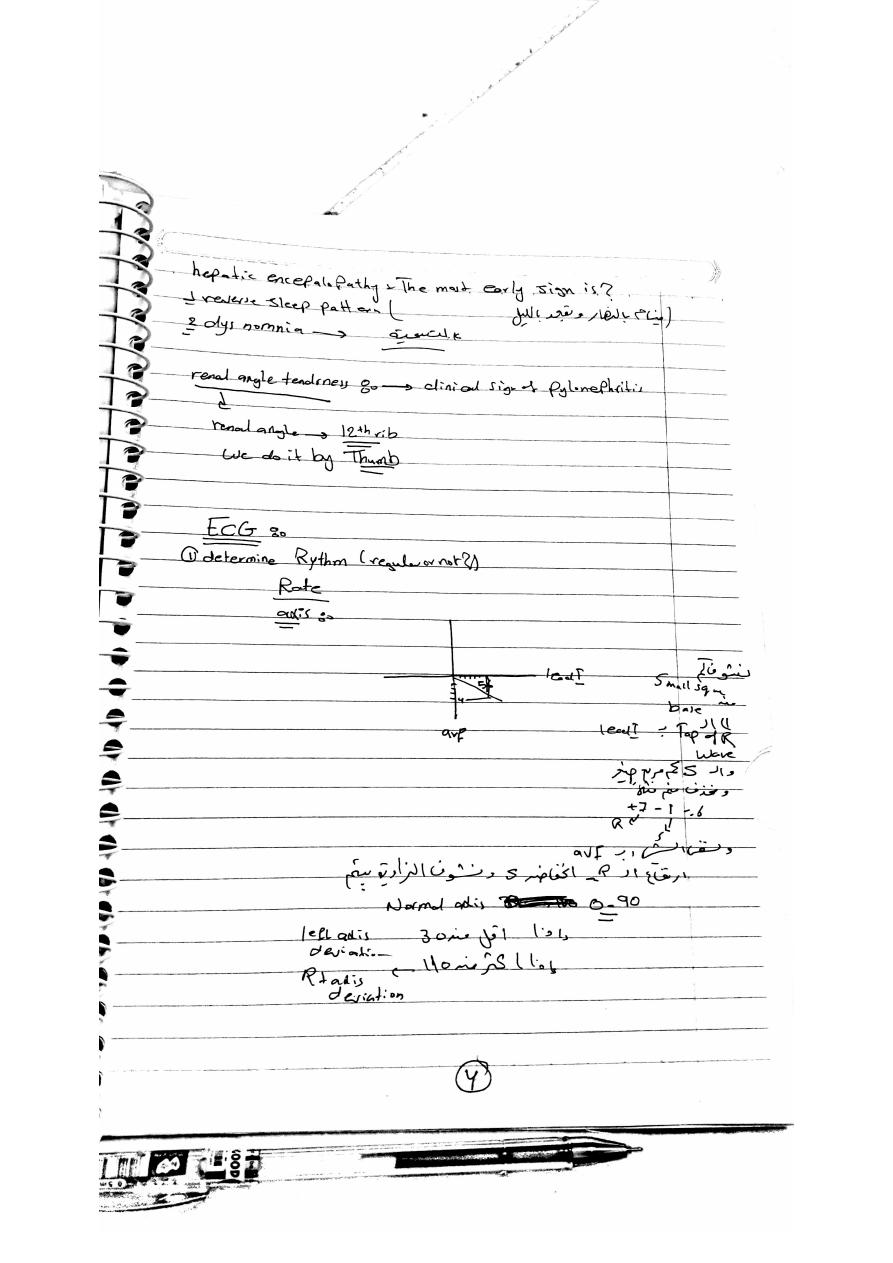 hepatic encepalopathy > The most early sign is?
1 reverse sleep pattern ( ينام بالنهار و بالليل )
2 dysnomnia →
renal angle tendrness 80 → clinical sign of pylonephritis
renal angle → 12th rib
we do it by Thumb
ECG 80
① determine Rythm (regular or not?)
Rate
axis 80
lead I
4
avf
نشوف كم
Small squ
base
lead I ب Top of R
wave
وال S كم مربع صغير
+7 - 1 = 6
R S
avf
ارتفاع ال R انخفاض S ونشوف الزاوية
Normal axis 0-90
left axis deviation واذا اقل من 30
Rt axis deviation ← واذا اكثر من 110
4